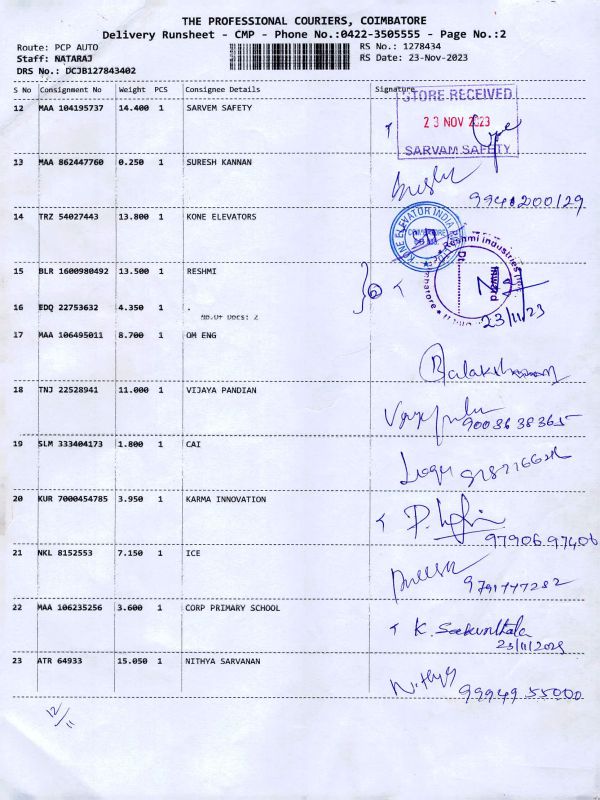 THE PROFESSIONAL COURIERS, COIMBATORE
Delivery Runsheet - CMP - Phone No.:0422-3505555 - Page No.:2
Route: PCP AUTO RS No.: 1278434
Staff: NATARAJ RS Date: 23-Nov-2023
DRS No.: DCJB127843402
S No Consignment No Weight PCS Consignee Details Signature
STORE RECEIVED
12 MAA 104195737 14.400 1 SARVEM SAFETY
23 NOV 2023
SARVAM SAFETY
13 MAA 862447760 0.250 1 SURESH KANNAN
14 TRZ 54027443 13.800 1 KONE ELEVATORS
KONE ELEVATOR INDIA
Reshmi Industries
15 BLR 1600980492 13.500 1 RESHMI
16 EDQ 22753632 4.350 1 .
No.Of Docs: 2
23/11/23
17 MAA 106495011 8.700 1 OM ENG
18 TNJ 22528941 11.000 1 VIJAYA PANDIAN
19 SLM 333404173 1.800 1 CAI
20 KUR 7000454785 3.950 1 KARMA INNOVATION
9790697406
21 NKL 8152553 7.150 1 ICE
22 MAA 106235256 3.600 1 CORP PRIMARY SCHOOL
23/11/2023
23 ATR 64933 15.050 1 NITHYA SARVANAN
Nithya 9994955000
12/11